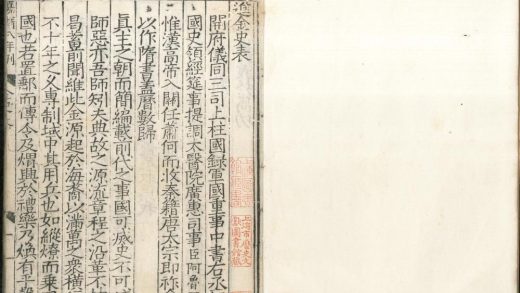 進金史表
開府儀同三司上柱國録軍國重事中書右丞
國史領經筵事提調太醫院廣惠司事臣阿魯
惟漢高帝入關任蕭何而收秦籍唐太宗即祚
以作隋書蓋曆數歸
真主之朝而簡編載前代之事國可滅史不可
師惡亦吾師矧夫典故之源流章程之沿革不
曷著前聞維此金源起於海裔以滿萬之衆橫
不十年之久專制域中其用兵也如縱燎而乘
國也若置郵而傳令及煟興於禮樂乃煥有乎
嘉靖八年刊
上海市歷史文
獻圖書館藏